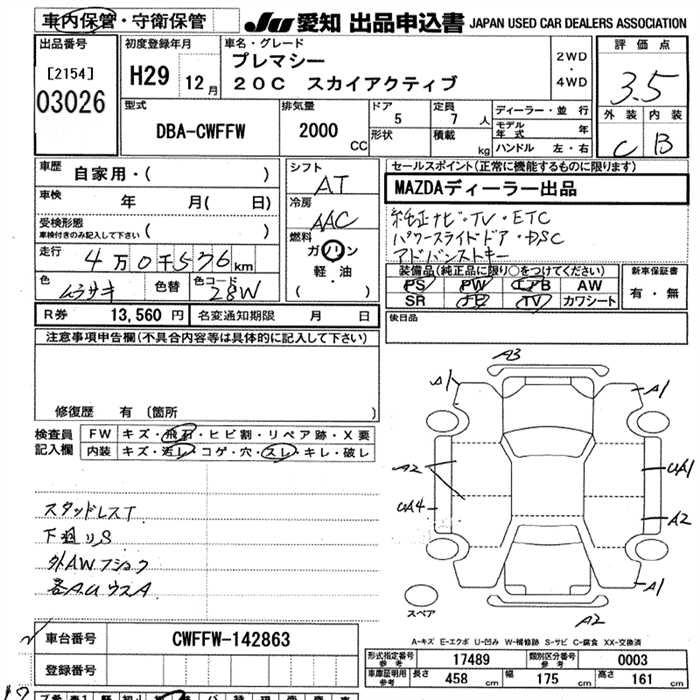 車内保管・守衛保管
JU 愛知 出品申込書 JAPAN USED CAR DEALERS ASSOCIATION
出品番号 [2154] 03026
初度登録年月 H29 12月
車名・グレード プレマシー
20C スカイアクティブ
2WD・4WD
評価点 3.5
外装 C 内装 B
型式 DBA-CWFFW
排気量 2000 CC
ドア 5 形状
定員 7人 積載 kg
ディーラー・並行
モデル年式 年
ハンドル 左・右
車歴 自家用・( )
車検 年 月( 日)
受検形態 車検付きのみ記入して下さい ( )
走行 4万0千576km
色 ムラサキ 色替 色コード 28W
シフト AT
冷房 AAC
燃料 ガソリン
軽・油
( )
セールスポイント(正常に機能するものに限ります)
MAZDAディーラー出品
純正ナビ・TV・ETC
パワースライドドア・DSC
アドバンストキー
装備品(純正品に限り○をつけてください)
PS PW エアB AW
SR ナビ TV カワシート
新車保証書 有・無
R券 13,560円 名変通知期限 月 日
後日品
注意事項申告欄(不具合内容等は具体的に記入して下さい)
修復歴 有 〔箇所 〕
検査員記入欄
FW キズ・飛石・ヒビ割・リペア跡・X要
内装 キズ・汚レ・コゲ・穴・スレ・キレ・破レ
スタッドレスT
下廻りS
外AWフショク
各A.UウスA
A3
A1
A1
A2
UA1
UA4
A2
A1
A2
スペア
A-キズ E-エクボ U-凹み W-補修跡 S-サビ C-腐食 XX-交換済
車台番号 CWFFW-142863
登録番号
形式指定番号 参考 17489 類別区分番号 参考 0003
車庫証明用 参考 長さ 458 cm 幅 175 cm 高さ 161 cm